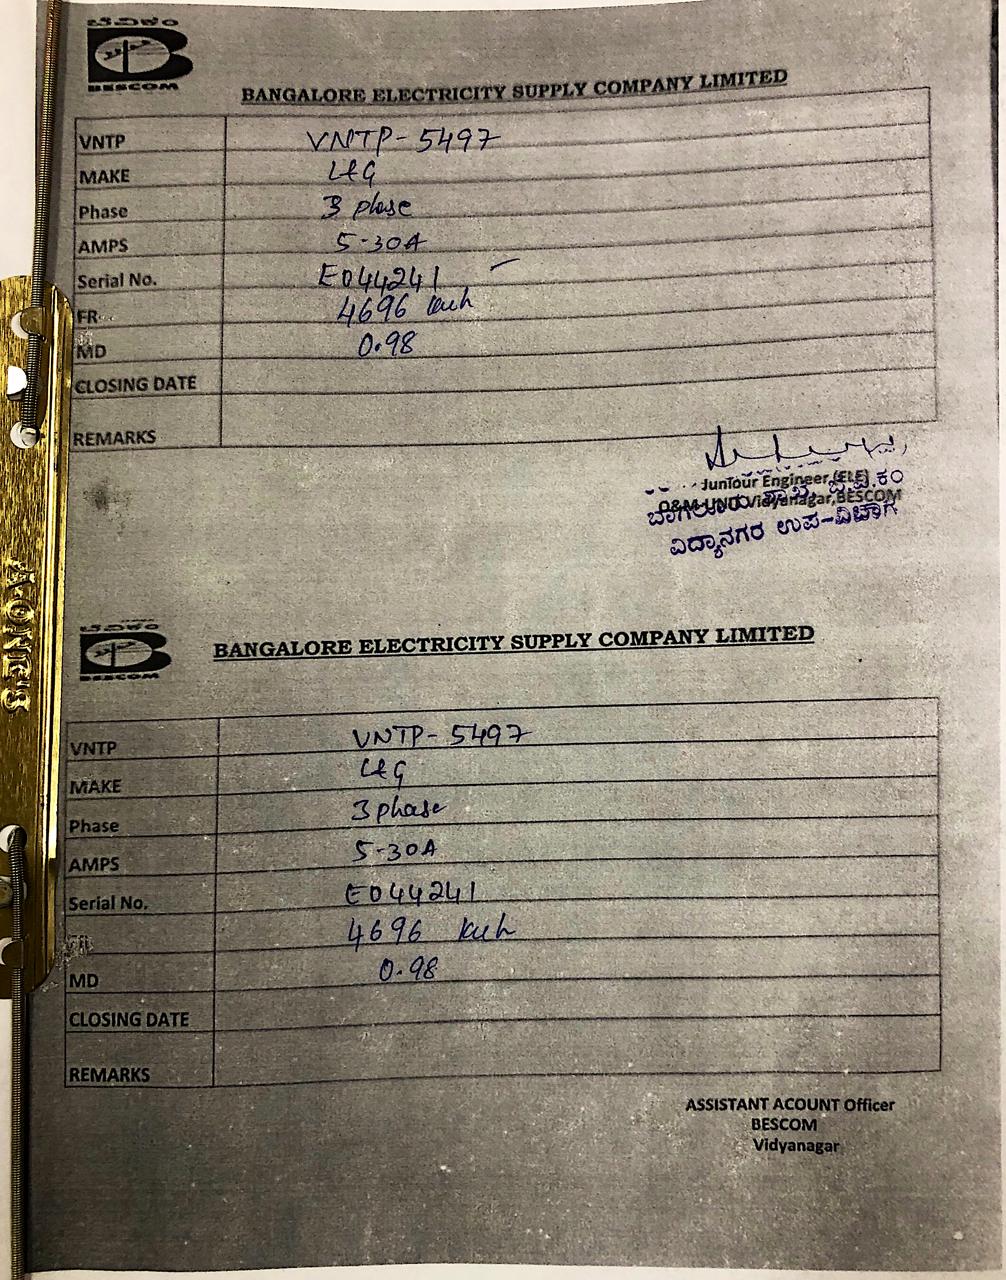 ಬೆವಿಕಂ
BESCOM
BANGALORE ELECTRICITY SUPPLY COMPANY LIMITED
VNTP VNTP-5497
MAKE L&G
Phase 3 phase
AMPS 5-30A
Serial No. E044241
FR 4696 kwh
MD 0.98
CLOSING DATE
REMARKS
Juniour Engineer,(ELE)
O&M UNIT Vidyanagar,BESCOM
ಬಾಗಲೂರು ಶಾಖೆ, ಬೆ.ವಿ.ಕಂ
ವಿದ್ಯಾನಗರ ಉಪ-ವಿಭಾಗ
A-ONE'S
ಬೆವಿಕಂ
BESCOM
BANGALORE ELECTRICITY SUPPLY COMPANY LIMITED
VNTP VNTP-5497
MAKE L&G
Phase 3 phase
AMPS 5-30A
Serial No. E044241
4696 kwh
MD 0.98
CLOSING DATE
REMARKS
ASSISTANT ACOUNT Officer
BESCOM
Vidyanagar